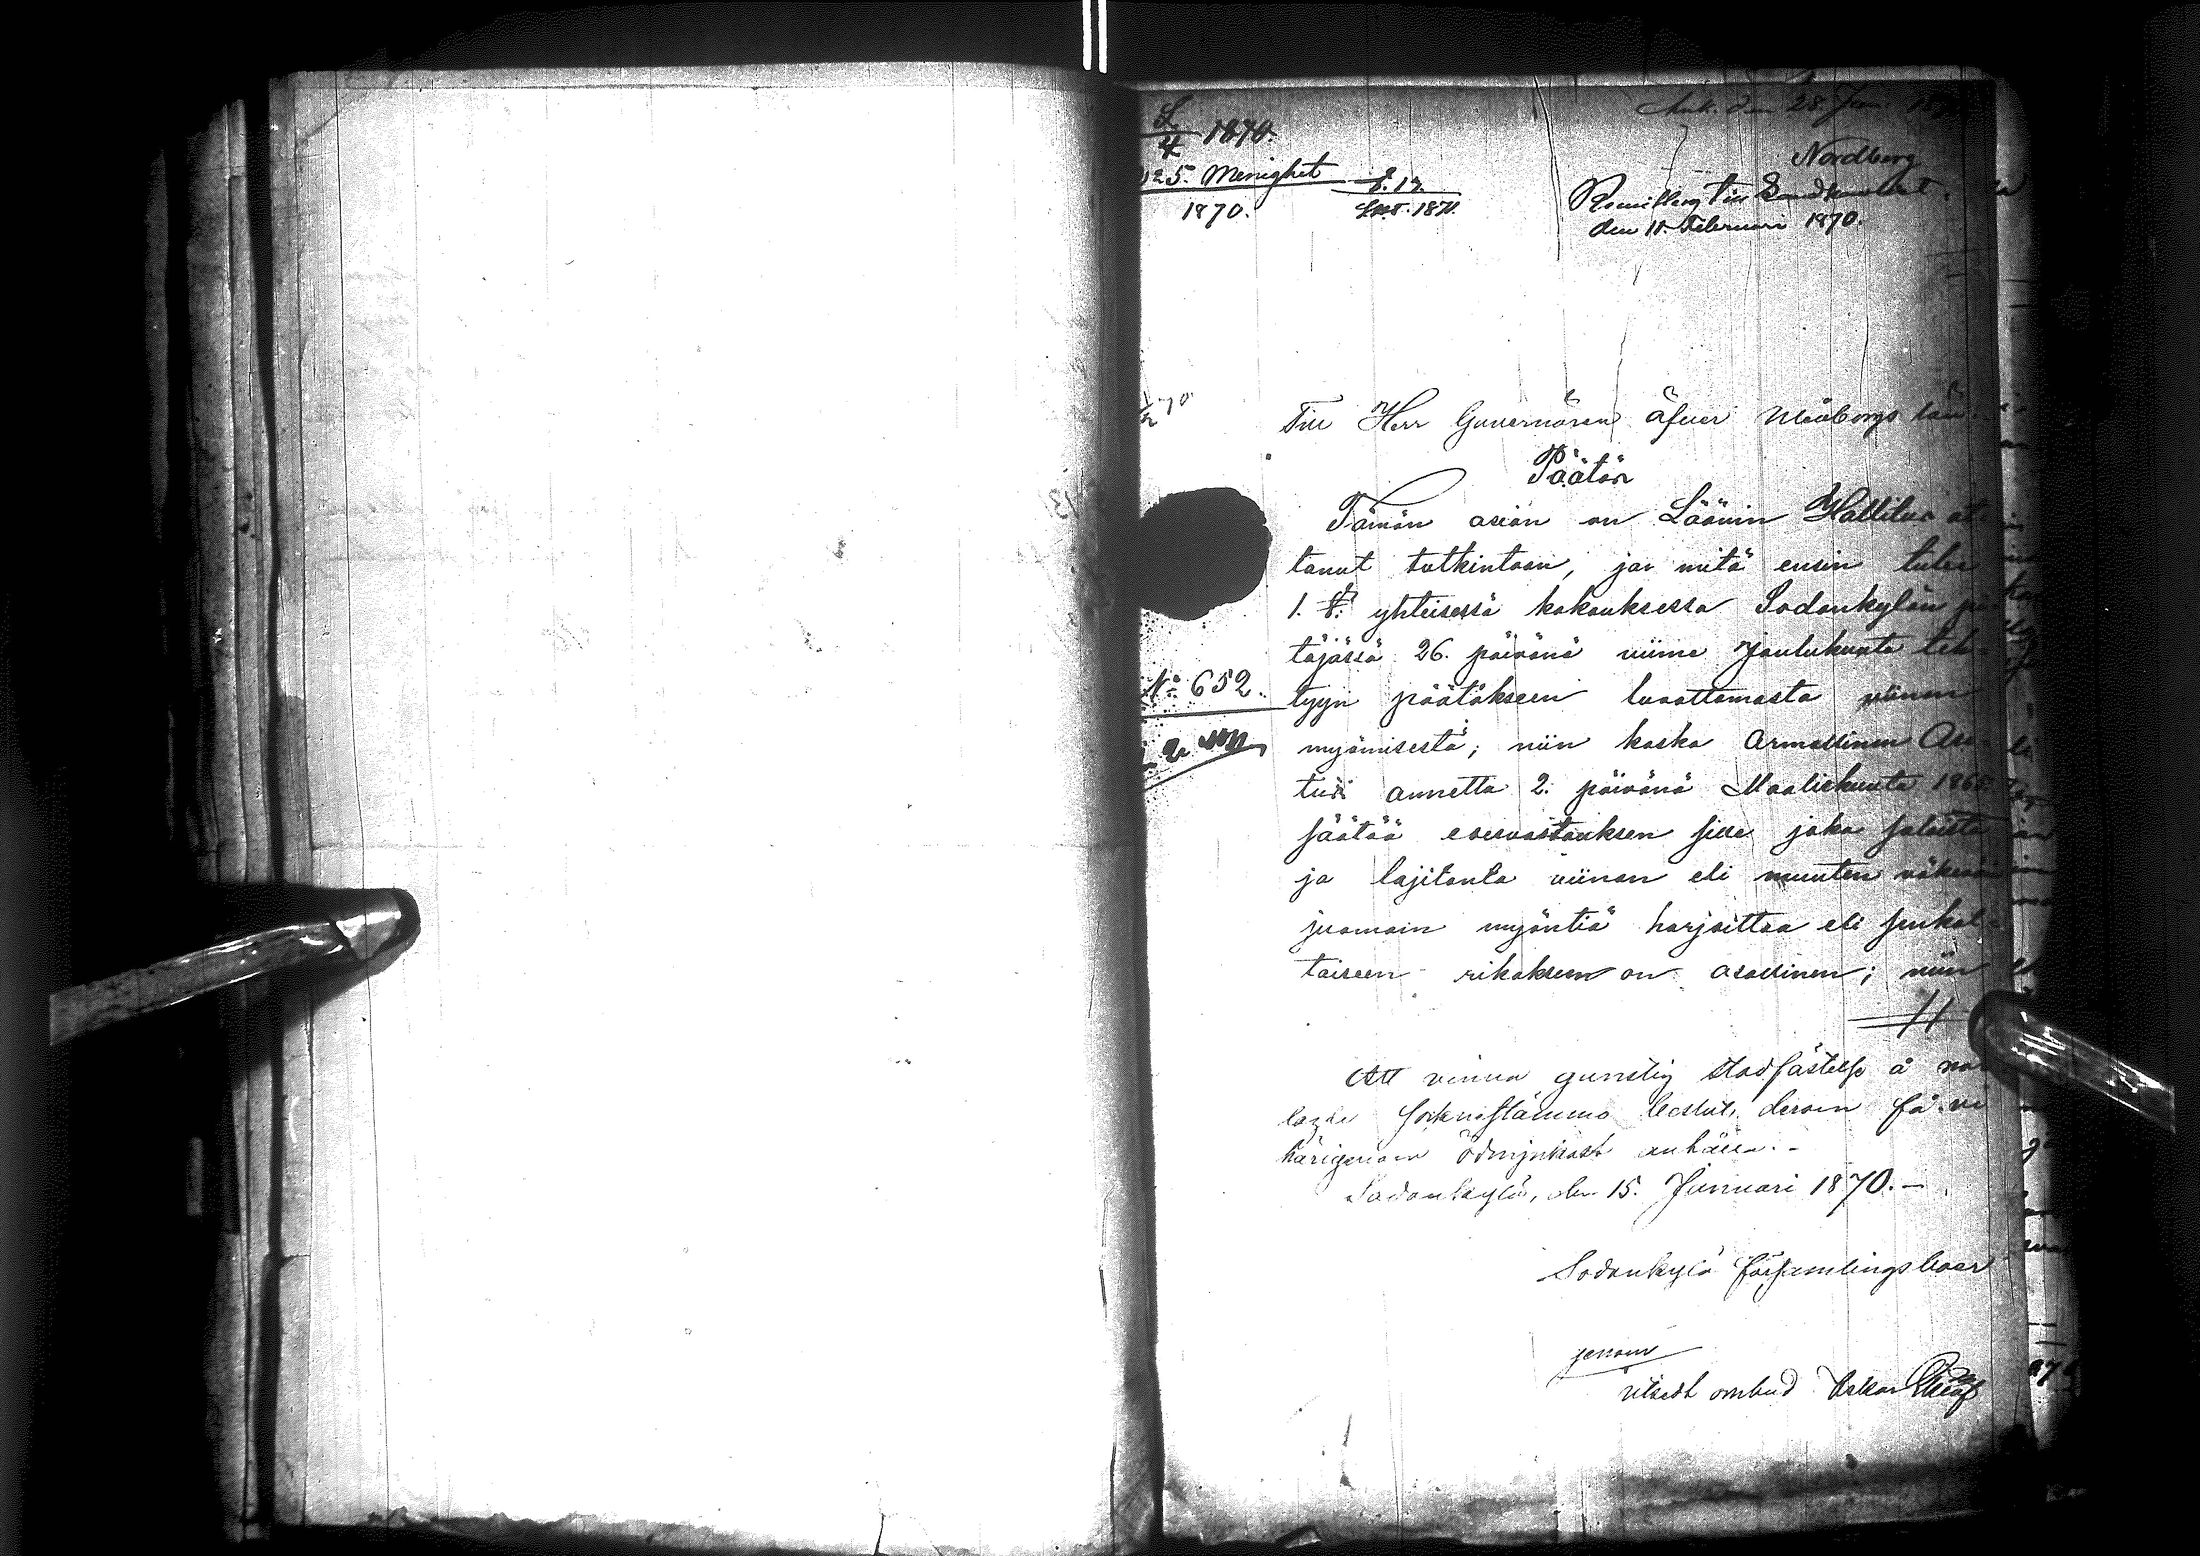 1870.
125. Menighet
1870.
Ank. den 28 Jan. 18
Nordberg
den 11 Februari 1870.
Till Herr Guvernören öfver Uleåborgs län.
Päätös
Tämän asian on Läänin Hallitus ot
tanut tutkintoon, ja mitä ensin tulee
1. § yhteisessä kokouksessa Sodankylän pi
täjässä 26. päivänä viime Joulukuuta teh-
tyyn päätökseen luvattomasta viinan
myömisestä; niin koska Armollinen Ase
tus annettu 2. päivänä Maaliskuuta 186
säätää edesvastauksen sille joka salaista
ja lajitonta viinan eli muuten väkevä
juomain myöntiä harjoittaa eli senkal-
taiseen rikokseen on osallinen; niin
No 652.
Att vinna gunstig stadfästelse å
lagde sockenstämmo beslut, derom få vi
härigenom ödmjukast anhålla. -
Sodankylä, den 15. Januari 1870. -
Sodankylä församlingsboer
genom
utsedt ombud Oskar